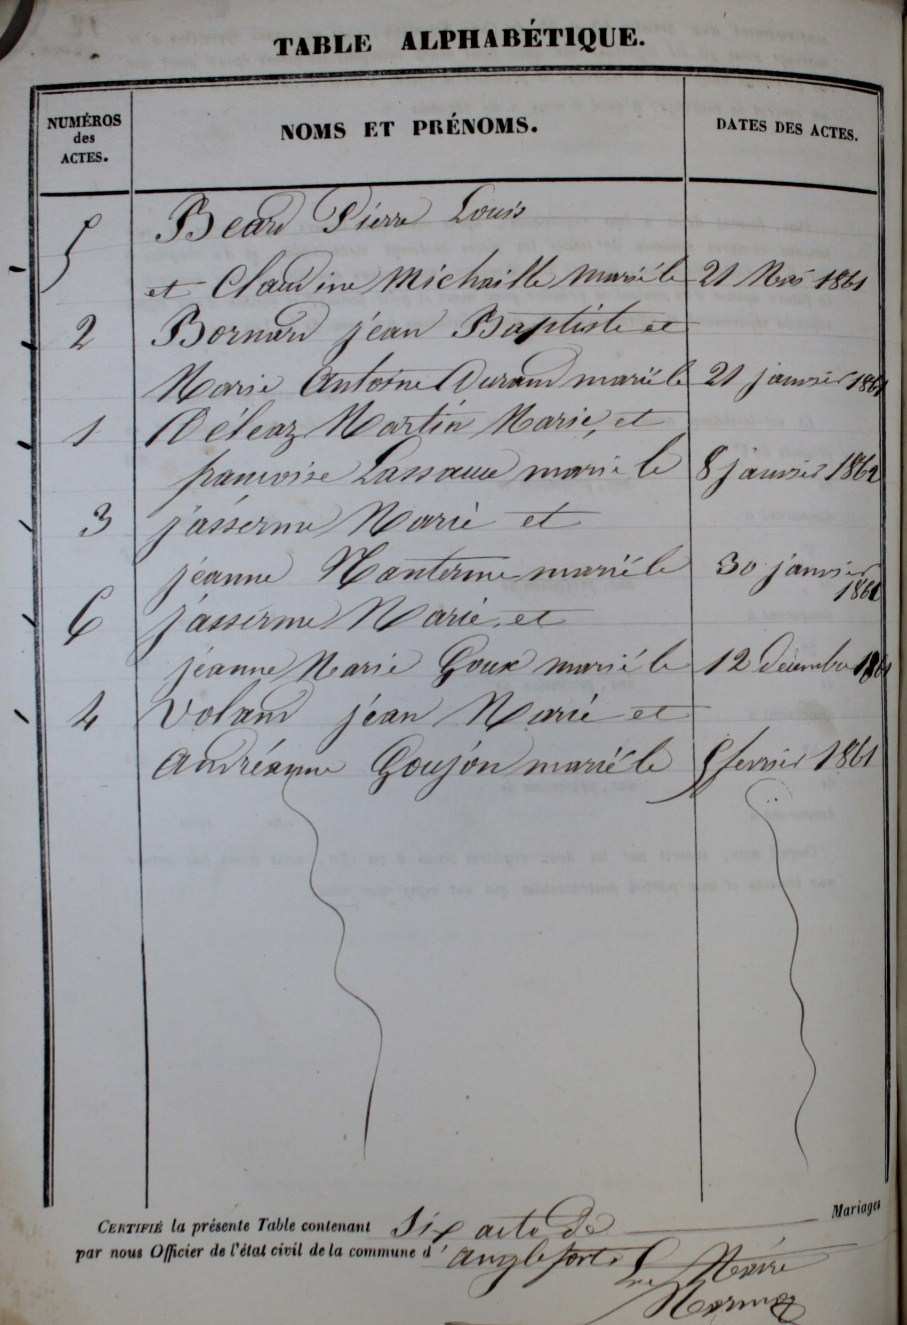 TABLE ALPHABÉTIQUE.
NUMÉROS des ACTES.
NOMS ET PRÉNOMS.
DATES DES ACTES.
5 Beard Pierre Louis
et Claudine Michaille marié le 21 Mai 1861
2 Bornard jean Baptiste et
Marie Antoine Durand marié le 21 janvier 1861
1 Déléaz Martin Marie, et
francoise Lassauce marié le 8 janvier 1861
3 jasserme Marie et
jeanne Manterme marié le 30 janvier 1861
6 jasserme Marie et
jeanne Marie Goux marié le 12 décembre 1861
4 Voland jean Marie et
Andréanne Goujon marié le 5 fevrier 1861
CERTIFIÉ la présente Table contenant six acte de Mariages
par nous Officier de l'état civil de la commune d'Anglefort.
Le Maire